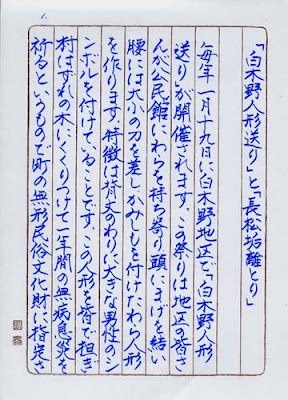 「白木野人形送り」と「長松垢離とり」
毎年一月十九日に白木野地区で「白木野人形
送り」が開催されます。この祭りは地区の皆さ
んが公民館にわらを持ち寄り頭にまげを結い
腰には大小の刀を差し、かみしもを付けたわら人形
を作ります。特徴は背丈のわりに大きな男性のシ
ンボルを付けていることです。この人形を皆で担ぎ
村はずれの木にくくりつけて一年間の無病息災を
祈るというもので町の無形民俗文化財に指定さ